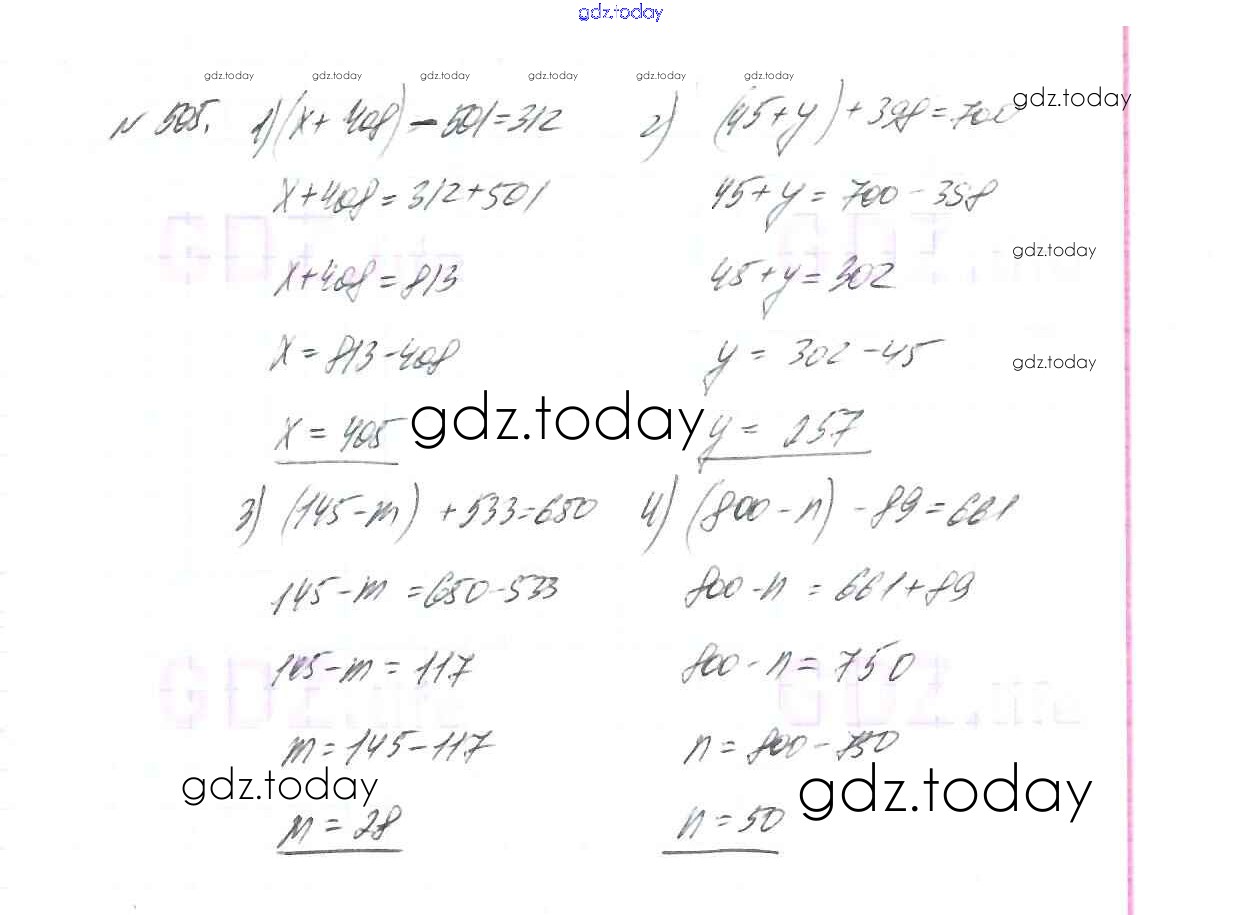 gdz.today
gdz.today gdz.today gdz.today gdz.today gdz.today gdz.today
№ 505. 1) (x + 408) - 501 = 312
x + 408 = 312 + 501
x + 408 = 813
x = 813 - 408
x = 405
2) (45 + y) + 398 = 700
gdz.today
45 + y = 700 - 398
gdz.today
45 + y = 302
y = 302 - 45
gdz.today
y = 257
gdz.today
3) (145 - m) + 533 = 650
145 - m = 650 - 533
145 - m = 117
m = 145 - 117
m = 28
gdz.today
4) (800 - n) - 89 = 661
800 - n = 661 + 89
800 - n = 750
n = 800 - 750
n = 50
gdz.today
GDZ.me
GDZ.me
GDZ.me
GDZ.me